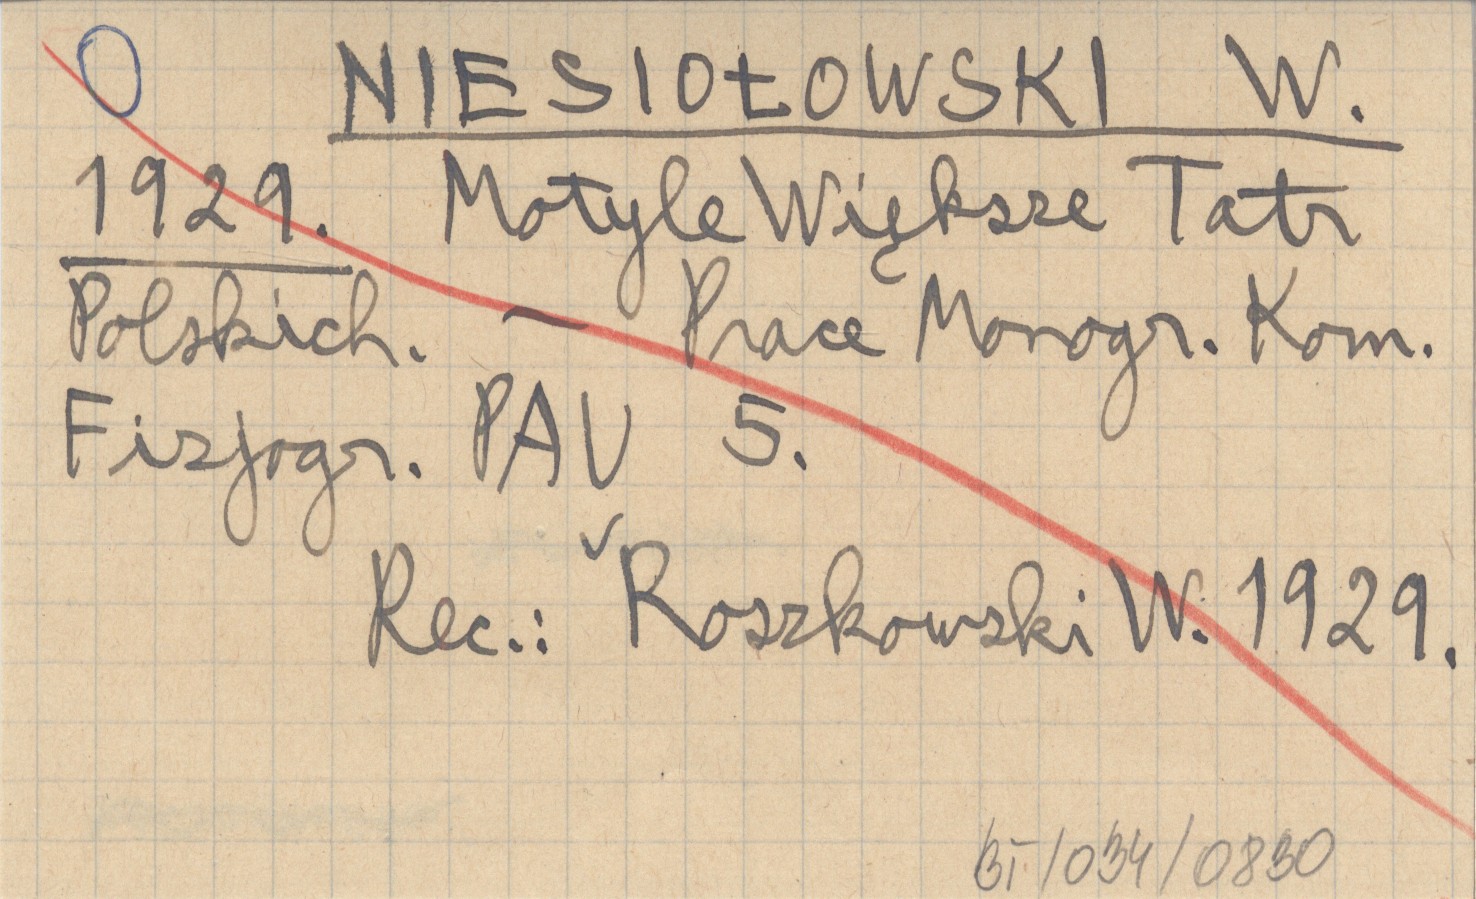 NIESIOŁOWSKI W.
1929. Motyle Większe Tatr
Polskich. — Prace Monogr. Kom.
Fizjogr. PAU 5.
Rec.: Roszkowski W. 1929.
BI/034/0830